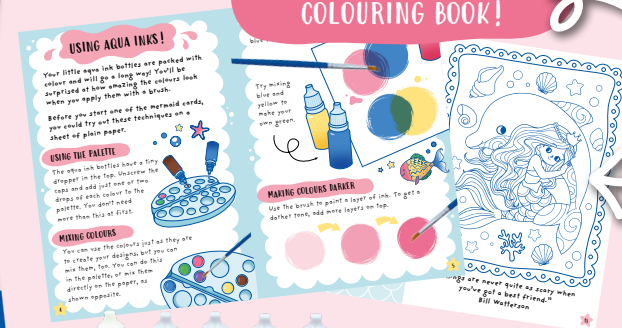 COLOURING BOOK!
USING AQUA INKS!
Your little aqua ink bottles are packed with
colour and will go a long way! You'll be
surprised at how amazing the colours look
when you apply them with a brush.
Before you start one of the mermaid cards,
you could try out these techniques on a
sheet of plain paper.
USING THE PALETTE
The aqua ink bottles have a tiny
dropper in the top. Unscrew the
caps and add just one or two
drops of each colour to the
palette. You don't need
more than this at first.
MIXING COLOURS
You can use the colours just as they are
to create your designs, but you can
mix them, too. You can do this
in the palette, or mix them
directly on the paper, as
shown opposite.
4
blue
Try mixing
blue and
yellow to
make your
own green.
MAKING COLOURS DARKER
Use the brush to paint a layer of ink. To get a
darker tone, add more layers on top.
5
are never quite as scary when
you've got a best friend."
Bill Watterson